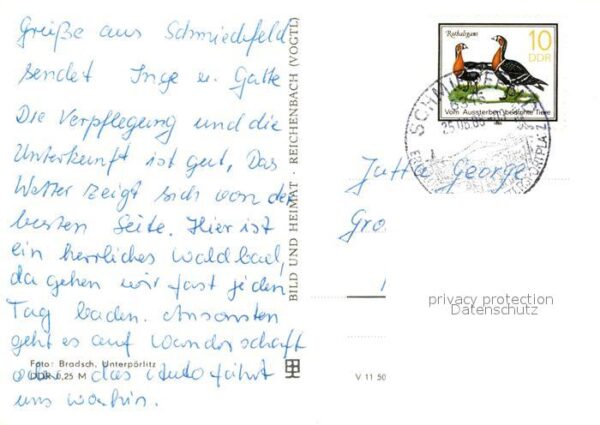 Grüße aus Schmiedefeld
sendet Inge u. Gatte
Die Verpflegung und die
Unterkunft ist gut, Das
Wetter zeigt sich von der
besten Seite. Hier ist
ein herrliches Waldbad,
da gehen wir fast jeden
Tag baden. Ansonsten
geht es auf Wanderschaft
oder das Auto fährt
uns wohin.
Foto: Bradsch, Unterpörlitz
DDR 0,25 M
BILD UND HEIMAT · REICHENBACH (VOGTL)
V 11 50
Rothalsgans
10
DDR
Vom Aussterben bedrohte Tiere
SCHMIEDEFEL
Jutta George
Gro
privacy protection
Datenschutz